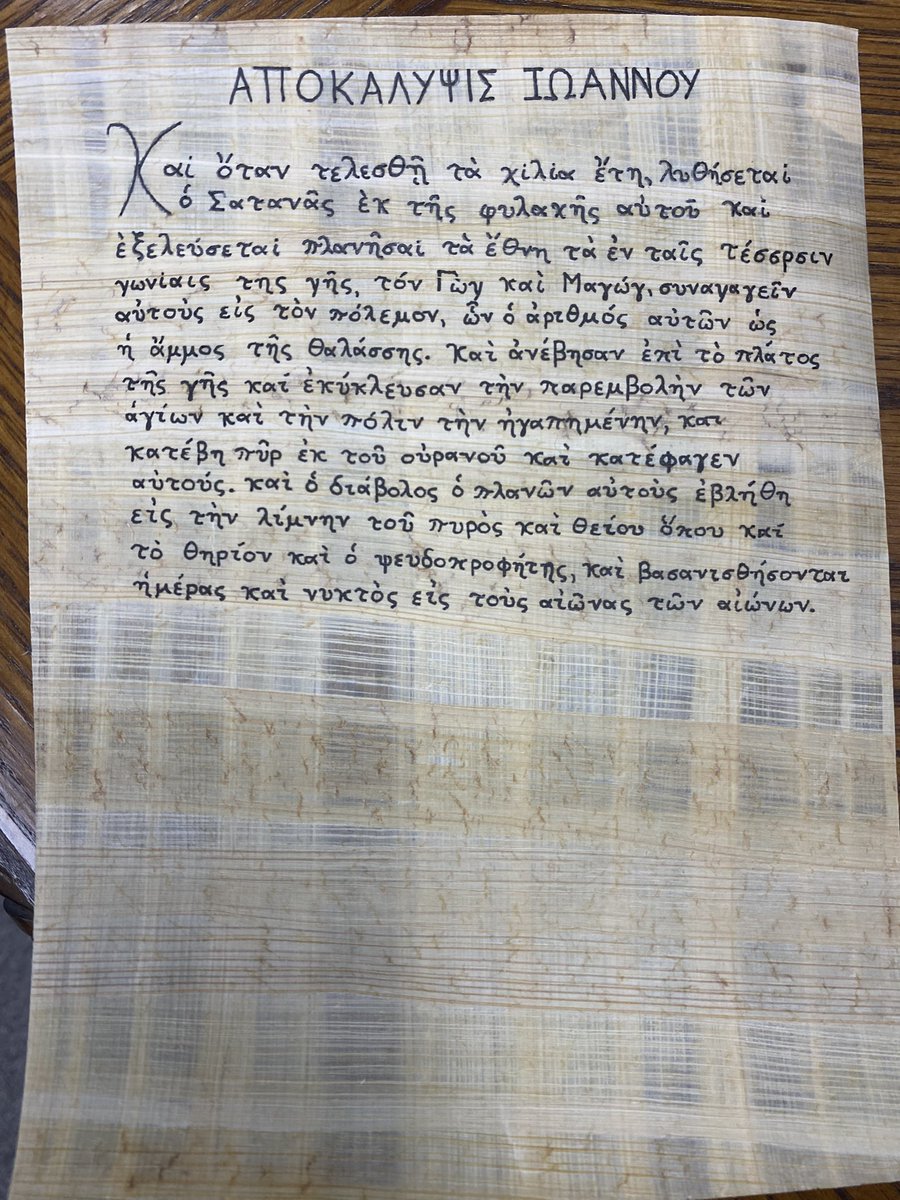 ΑΠΟΚΑΛΥΨΙΣ ΙΩΑΝΝΟΥ
Καί ὅταν τελεσθῇ τὰ χίλια ἔτη, λυθήσεται
ὁ Σατανᾶς ἐκ τῆς φυλακῆς αὐτοῦ καὶ
ἐξελεύσεται πλανῆσαι τὰ ἔθνη τὰ ἐν ταῖς τέσσρσιν
γωνίαις της γῆς, τόν Γὼγ καὶ Μαγώγ, συναγαγεῖν
αὐτοὺς εἰς τὸν πόλεμον, ὧν ὁ ἀριθμός αὐτῶν ὡς
ἡ ἄμμος τῆς θαλάσσης. Καὶ ἀνέβησαν ἐπὶ τὸ πλάτος
τῆς γῆς καί ἐκύκλευσαν τὴν παρεμβολὴν τῶν
ἁγίων καὶ τὴν πόλιν τὴν ἠγαπημένην, και
κατέβη πῦρ ἐκ τοῦ οὐρανοῦ καὶ κατέφαγεν
αὐτούς. καὶ ὁ διάβολος ὁ πλανῶν αὐτοὺς ἐβλήθη
εἰς τὴν λίμνην τοῦ πυρὸς καὶ θείου ὅπου καί
τὸ θηρίον καὶ ὁ ψευδοπροφήτης, καὶ βασανισθήσονται
ἡμέρας καὶ νυκτὸς εἰς τοὺς αἰῶνας τῶν αἰώνων.